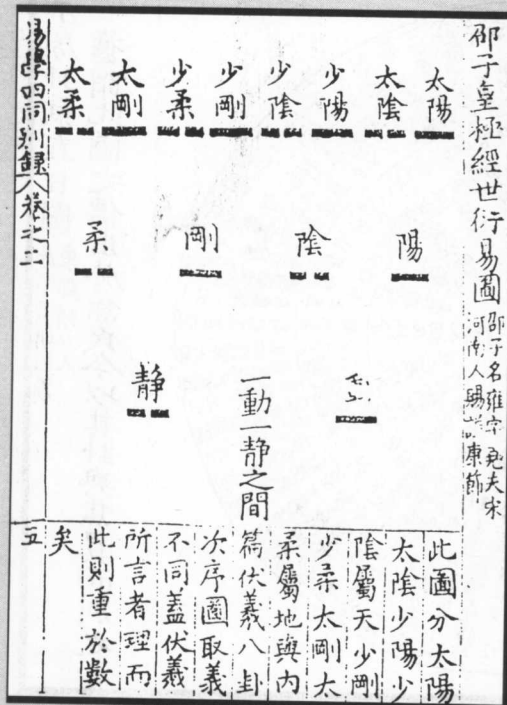 邵子皇極經世衍易圖 邵子名雍字堯夫宋
河南人賜諡康節
太陽
太陰
少陽
少陰
少剛
少柔
太剛
太柔
陽
陰
剛
柔
一動一静之間
静
此圖分太陽
太陰少陽少
陰屬天少剛
少柔太剛太
柔屬地與内
篇伏羲八卦
次序圖取義
不同蓋伏羲
所言者理而
此則重於數
矣
易學四同别錄 卷之二
五